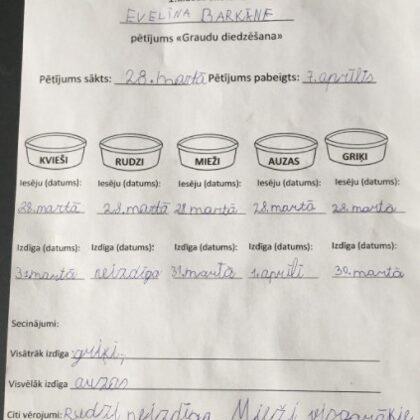 EVELĪNA BARKĀNE
pētījums «Graudu diedzēšana»
Pētījums sākts: 28. martā Pētījums pabeigts: 7. aprīlis
KVIEŠI RUDZI MIEŽI AUZAS GRIĶI
Iesēju (datums): Iesēju (datums): Iesēju (datums): Iesēju (datums): Iesēju (datums):
28. martā 28. martā 28 martā 28. martā 28. martā
Izdīga (datums): Izdīga (datums): Izdīga (datums): Izdīga (datums): Izdīga (datums):
31 martā neizdīga 31. martā 1. aprīlī 30. martā
Secinājumi:
Visātrāk izdīga griķi,
Visvēlāk izdīga auzas
Citi vērojumi: Rudzi neizdīga Mieži